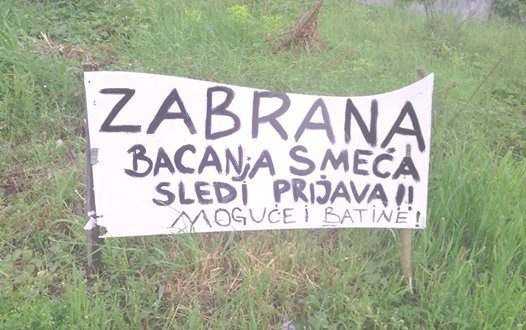 ZABRANA
BACANjA SMEĆA
SLEDI PRIJAVA!!
MOGUĆE I BATINE!